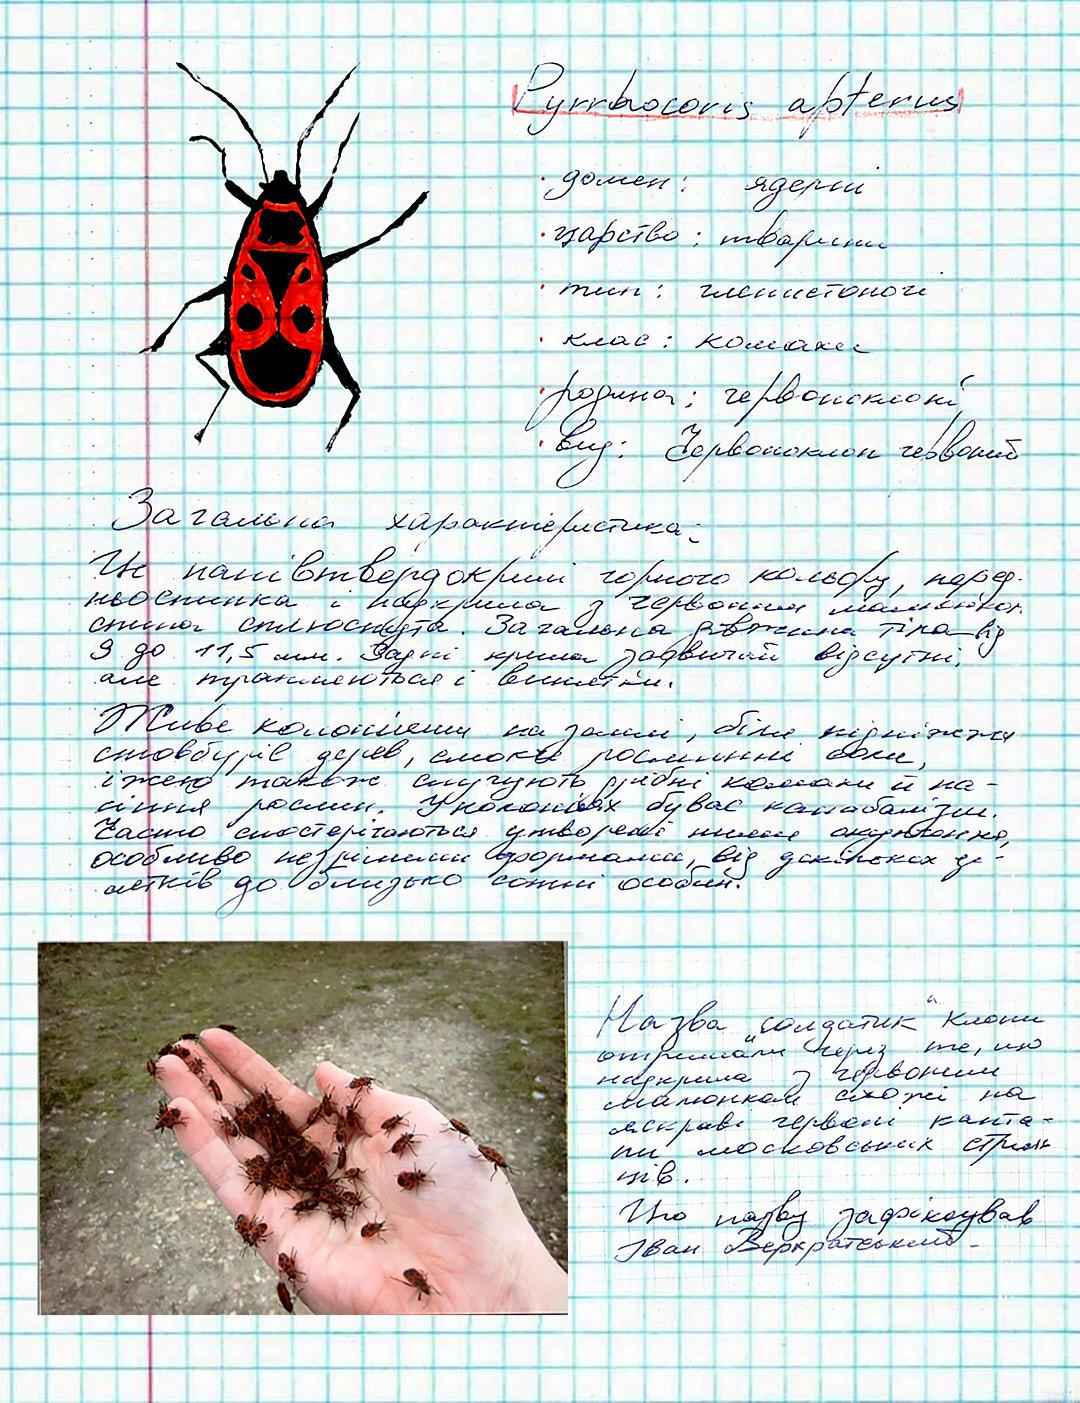 Pyrrhocoris apterus
· домен: ядерні
· царство: тварини
· тип: членистоногі
· клас: комахи
· родина: червоноклопі
· вид: Червоноклоп червоний
Загальна характеристика:
Це напівтвердокрилі чорного кольору, перед-
ньоспинка і надкрила з червоним малюнком,
спина сплюснута. Загальна довжина тіла від
9 до 11,5 мм. Задні крила зазвичай відсутні,
але трапляються і винятки.
Живе колоніями на землі, біля підніжжя
стовбурів дерев, смокче рослинні соки,
їжею також слугують дрібні комахи й на-
сіння рослин. У колоніях буває канібалізм.
Часто спостерігаються утворені ними скупчення,
особливо незрілими формами, від декількох де-
сятків до близько сотні особин.
Назва "солдатик" клопи
отримали через те, що
надкрила з червоним
малюнком схожі на
яскраві червоні капта-
ни московських стріль
ців.
Цю назву зафіксував
Іван Верхратський.